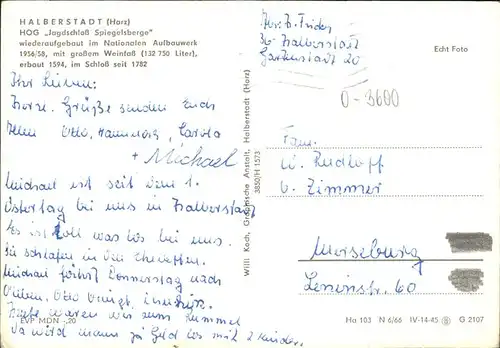 HALBERSTADT (Harz)
HOG „Jagdschloß Spiegelsberge"
wiederaufgebaut im Nationalen Aufbauwerk
1956/58, mit großem Weinfaß (132 750 Liter),
erbaut 1594, im Schloß seit 1782
Ihr Lieben!
Herzl. Grüße senden Euch
allen Otto, Hannelore, Carola
+ Michael
Michael ist seit dem 1.
Ostertag bei uns in Halberstadt
Es ist toll was los bei uns.
Sie schlafen in den Ehebetten.
Michael fährt Donnerstag nach
Otto bringt
Heute waren wir zum Rummel
Da wird man ja Geld los mit 2 Kinder.
EVP MDN -,20
Willi Koch, Graphische Anstalt, Halberstadt (Harz)
3850/H 1573
Echt Foto
36 Halberstadt
Gartenstadt 20
O-3600
Fam.
W. Rudloff
b. Zimmer
Merseburg
Leninstr. 60
Ha 103 N 6/66 IV-14-45 G 2107